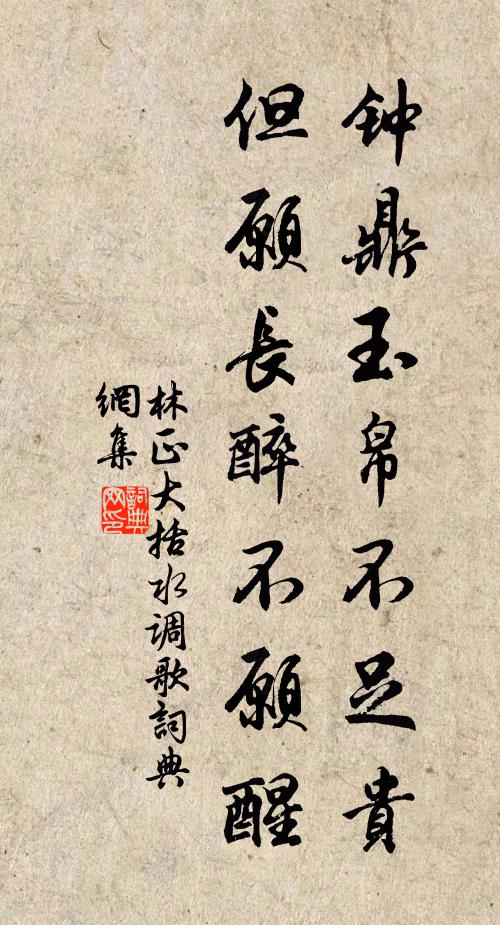 钟鼎玉帛不足貴
但願長醉不願醒
林正大括水调歌詞典
網集
詞典
网印